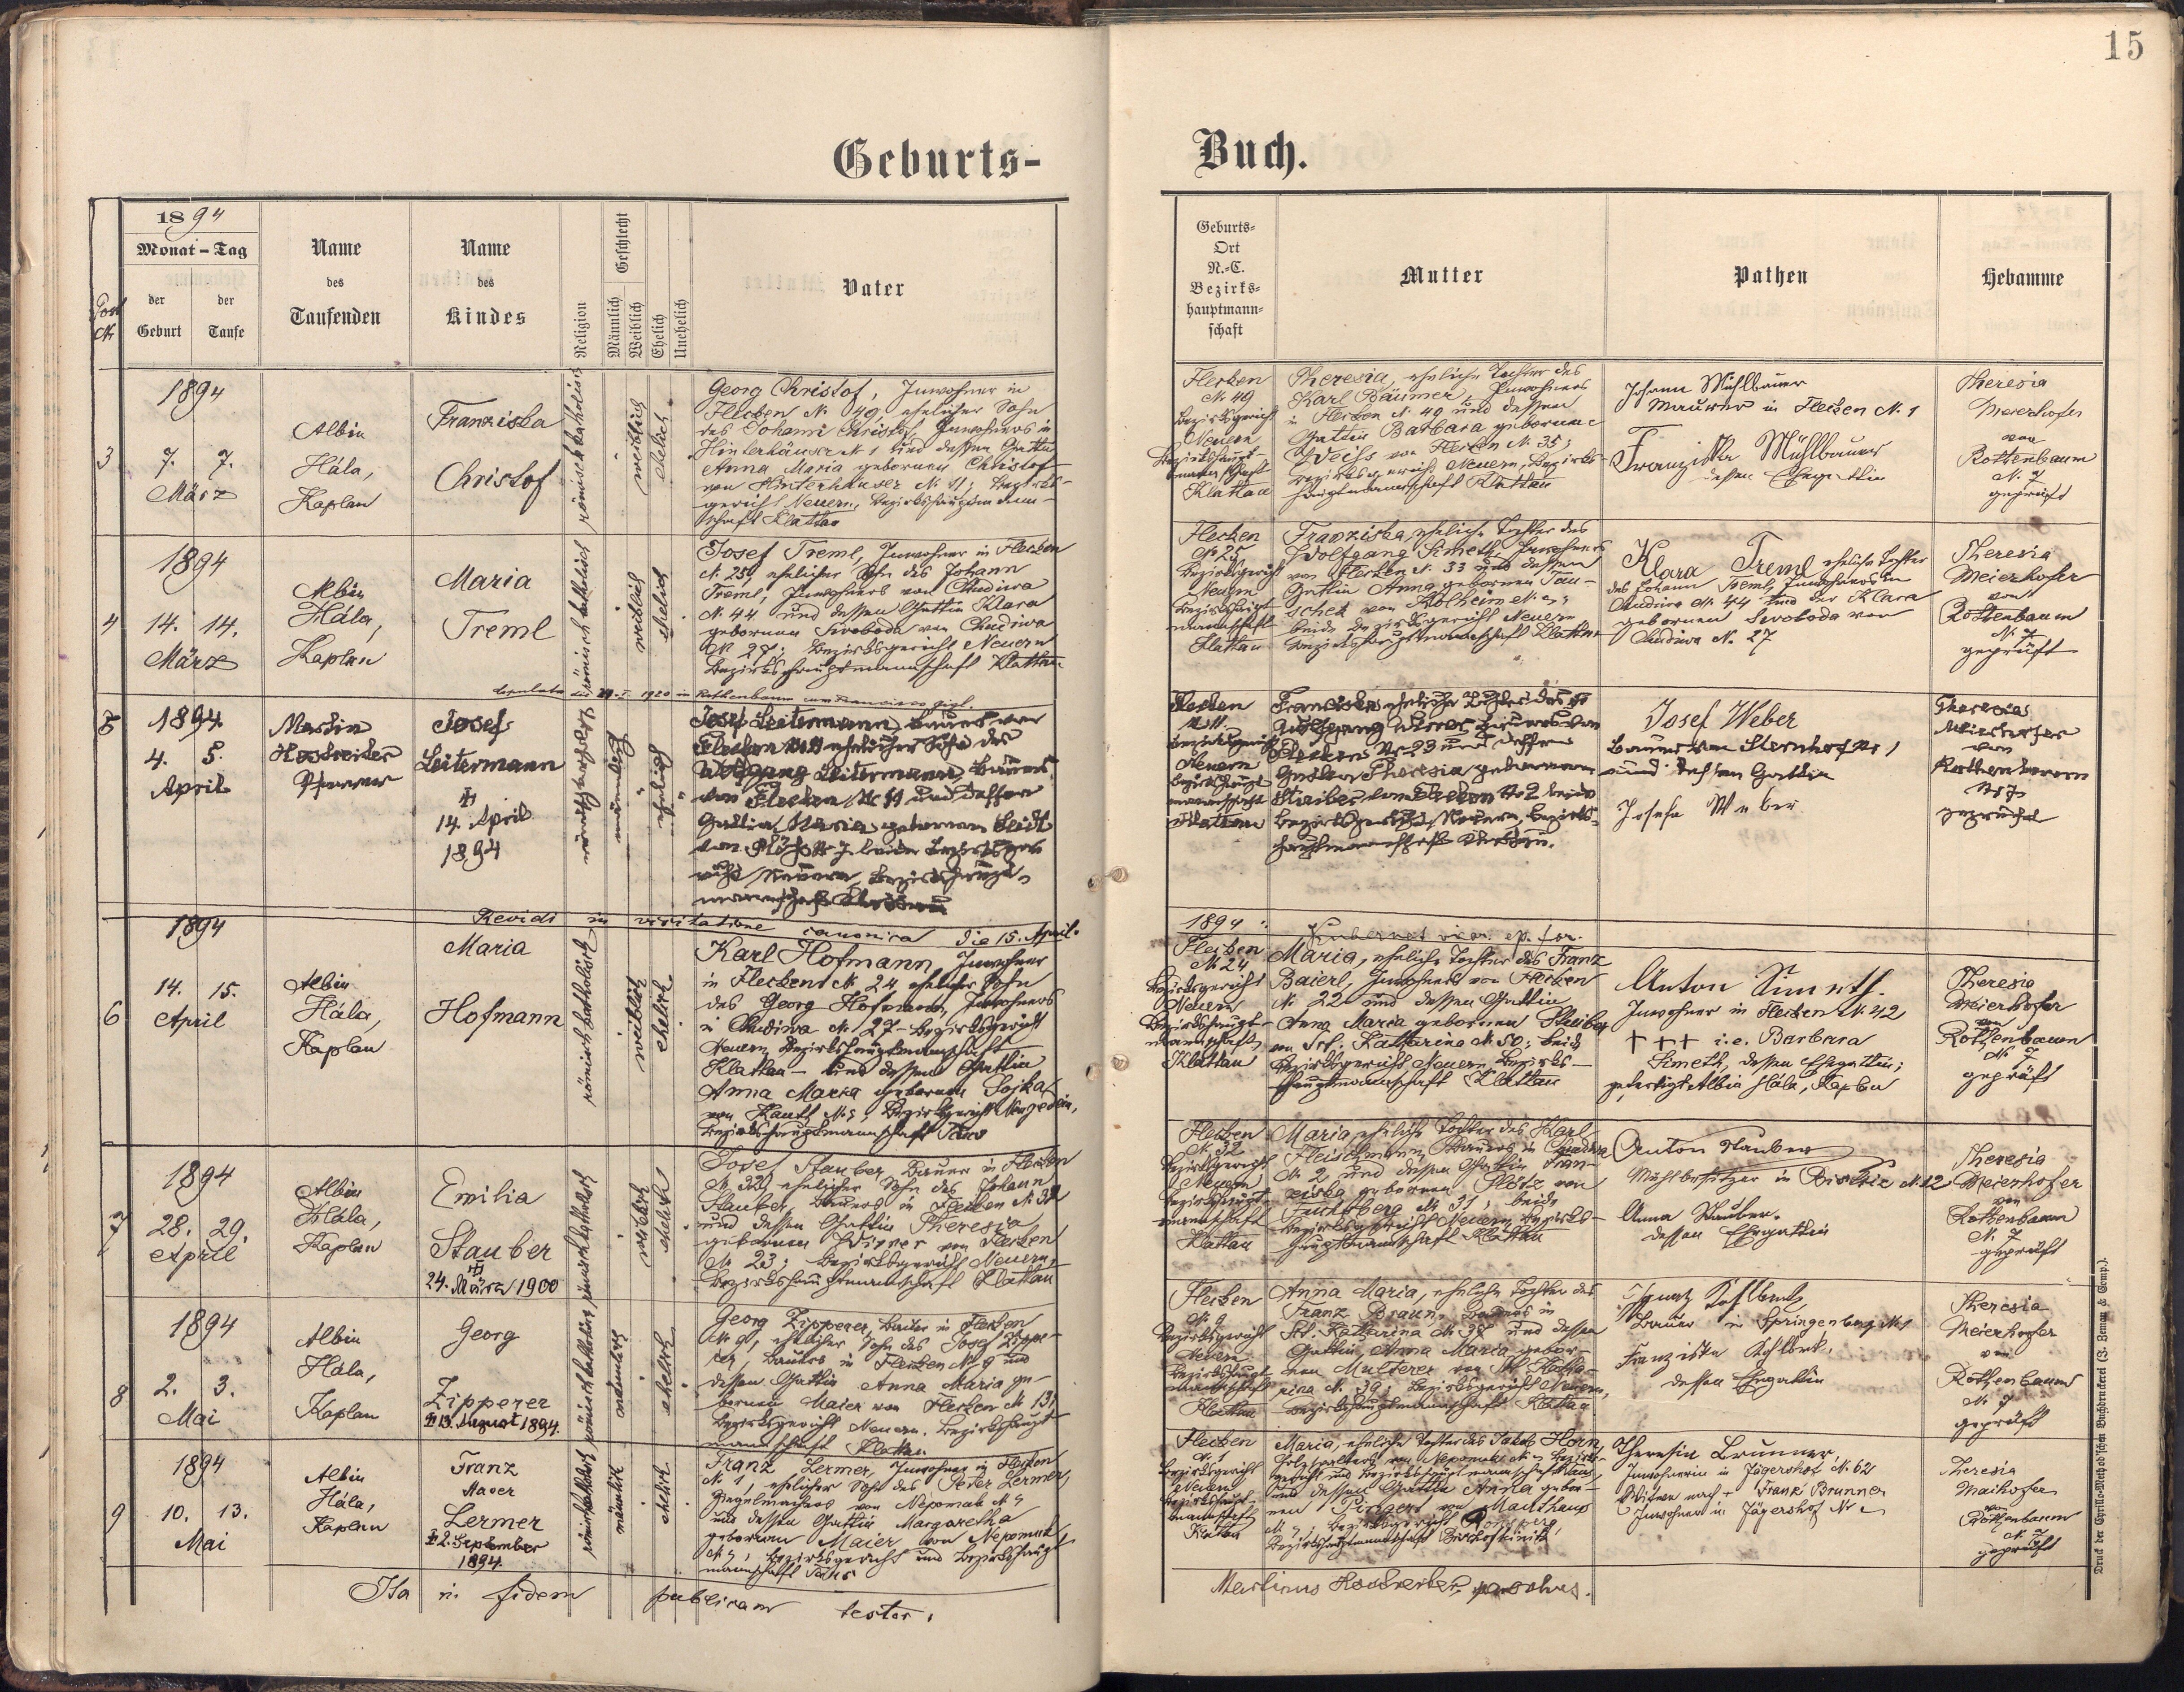 15
Geburts-Buch.
Post
Nr
1894
Monat – Tag
der
Geburt
der
Taufe
Name
des
Taufenden
Name
des
Kindes
Religion
Geschlecht
Männlich
Weiblich
Ehelich
Unehelich
Vater
Geburts-
Ort
N.-C.
Bezirks-
hauptmann-
schaft
Mutter
Pathen
Hebamme
3
1894
7. 7.
März
Albin
Hála,
Kaplan
Franziska
Christof
römisch katholisch
weiblich
ehelich
Georg Christof, Inwohner in
Flecken N. 49, ehelicher Sohn
des Johann Christof, Inwohners in
Hinterhäuser N. 1 und dessen Gattin
Anna Maria gebornen Christof
von Hinterhäuser N. 11; Bezirks-
gericht Neuern, Bezirkshauptmann-
schaft Klattau
Flecken
N. 49
Bezirksgericht
Neuern
Bezirkshaupt-
mannschaft
Klattau
Theresia, eheliche Tochter des
Karl Bäumer, Inwohners
in Flecken N. 49 und dessen
Gattin Barbara gebornen
Weiss von Flecken N. 35;
Bezirksgericht Neuern, Bezirks-
hauptmannschaft Klattau
Johann Mühlbauer
Maurer in Flecken N. 1
Franziska Mühlbauer
dessen Ehegattin
Theresia
Meierhofer
von
Rothenbaum
N. 7
geprüft
4
1894
14. 14.
März
Albin
Hála,
Kaplan
Maria
Treml
römisch katholisch
weiblich
ehelich
Josef Treml, Inwohner in Flecken
N. 25, ehelicher Sohn des Johann
Treml, Inwohners von Chudiwa
N. 44 und dessen Gattin Klara
gebornen Swoboda von Chudiwa
N. 27; Bezirksgericht Neuern
Bezirkshauptmannschaft Klattau
copulata die 1920 in Rothenbaum cum Francisco
Flecken
N. 25
Bezirksgericht
Neuern
Bezirkshaupt-
mannschaft
Klattau
Franziska, eheliche Tochter des
Wolfgang Simeth, Inwohners
von Flecken N. 33 und dessen
Gattin Anna gebornen Tau-
schek von Kolheim N.
beide Bezirksgericht Neuern
Bezirkshauptmannschaft Klattau
Klara Treml eheliche Tochter
des Johann Treml, Inwohners in
Chudiwa N. 44 und der Klara
gebornen Swoboda von
Chudiwa N. 27
Theresia
Meierhofer
von
Rothenbaum
N. 7
geprüft
5
1894.
4. 5.
April
Martin
Hostreiter
Pfarrer
Josef
Leitermann
14. April
1894
römisch katholisch
männlich
ehelich
Josef Leitermann, Bauer von
Flecken N. 11 ehelicher Sohn des
Wolfgang Leitermann, Bauers
von Flecken N. 11 und dessen
Gattin Maria gebornen
von Plöss N. 7 beide Bezirksge-
richt Neuern, Bezirkshaupt-
mannschaft Klattau
Flecken
N. 11
Bezirksgericht
Neuern
Bezirkshaupt-
mannschaft
Klattau
Franziska eheliche Tochter des
Wolfgang Wirrer, Bauers von
Flecken N. 23 und dessen
Gattin Theresia gebornen
Streiber von Flecken N. 2 beide
Bezirksgericht Neuern, Bezirks-
hauptmannschaft Klattau.
Josef Weber
Bauer von Sternhof Nr 1
und dessen Gattin
Josefa Weber
Theresia
Meierhofer
von
Rothenbaum
N. 7
geprüft
Revidi in visitatione canonica die 15. April
1894:
vic. ep. for.
6
1894
14. 15.
April
Albin
Hála,
Kaplan
Maria
Hofmann
römisch katholisch
weiblich
ehelich
Karl Hofmann, Inwohner
in Flecken N. 24 ehelicher Sohn
des Georg Hofmann, Inwohners
in Chudiwa N. 27 – Bezirksgericht
Neuern, Bezirkshauptmannschaft
Klattau – und dessen Gattin
Anna Maria gebornen Sojka
von Kauth N. 5, Bezirksgericht Neugedein,
Bezirkshauptmannschaft Taus
Flecken
N. 24
Bezirksgericht
Neuern
Bezirkshaupt-
mannschaft
Klattau
Maria, eheliche Tochter des Franz
Baierl, Inwohners von Flecken
N. 22 und dessen Gattin
Anna Maria gebornen Streiber
von Skt. Katharina N. 50; beide
Bezirksgericht Neuern Bezirks-
hauptmannschaft Klattau
Anton Simeth
Inwohner in Flecken N. 42
+++ i.e. Barbara
Simeth, dessen Ehegattin;
gefertigt Albin Hála, Kaplan
Theresia
Meierhofer
von
Rothenbaum
N. 7
geprüft
7
1894
28. 29.
April
Albin
Hála,
Kaplan
Emilia
Stauber
24. März 1900
römisch katholisch
weiblich
ehelich
Josef Stauber, Bauer in Flecken
N. 32, ehelicher Sohn des Johann
Stauber, Bauers in Flecken N. 32
und dessen Gattin Theresia
gebornen Wirrer von Flecken
N. 23; Bezirksgericht Neuern,
Bezirkshauptmannschaft Klattau
Flecken
N. 32
Bezirksgericht
Neuern
Bezirkshaupt-
mannschaft
Klattau
Maria, eheliche Tochter des Karl
Fleischmann, Bauers in Chudiwa
N. 2 und dessen Gattin Fran-
ziska gebornen Plötz von
Fuchsberg N. 31; beide
Bezirksgericht Neuern Bezirks-
hauptmannschaft Klattau
Anton Stauber
Mühlbesitzer in Bistritz N. 12
Anna Stauber.
dessen Ehegattin
Theresia
Meierhofer
von
Rothenbaum
N. 7
geprüft
8
1894
2. 3.
Mai
Albin
Hála,
Kaplan
Georg
Zipperer
13. August 1894.
römisch katholisch
männlich
ehelich
Georg Zipperer, Bauer in Flecken
N. 9, ehelicher Sohn des Josef Zippe-
rer, Bauers in Flecken N. 9 und
dessen Gattin Anna Maria ge-
bornen Maier von Flecken N. 13;
Bezirksgericht Neuern, Bezirkshaupt-
mannschaft Klattau
Flecken
N. 9
Bezirksgericht
Neuern
Bezirkshaupt-
mannschaft
Klattau
Anna Maria, eheliche Tochter des
Franz Braun, Bauers in
Skt. Katharina N. 38 und dessen
Gattin Anna Maria gebor-
nen Multerer von Skt. Katha-
rina N. 39; Bezirksgericht Neuern,
Bezirkshauptmannschaft Klattau
Ignaz Kohlbeck
Bauer in Springenberg N. 1
Franziska Kohlbeck.
dessen Ehegattin
Theresia
Meierhofer
von
Rothenbaum
N. 7
geprüft
9
1894
10. 13.
Mai
Albin
Hála,
Kaplan
Franz
Xaver
Lermer
2. September
1894.
römisch katholisch
männlich
ehelich
Franz Lermer, Inwohner in Flecken
N. 1, ehelicher Sohn des Peter Lermer,
Ziegelmachers von Nepomuk N.
und dessen Gattin Margaretha
gebornen Maier von Nepomuk
N. ; Bezirksgericht und Bezirkshaupt-
mannschaft Taus
Flecken
N. 1
Bezirksgericht
Neuern
Bezirkshaupt-
mannschaft
Klattau
Maria, eheliche Tochter des Jakob Horn,
von Nepomuk N. Bezirks-
gericht und Bezirkshauptmannschaft Taus
und dessen Gattin Anna gebor-
nen von Mauthaus
N. , Bezirksgericht
Bezirkshauptmannschaft Bischofteinitz
Theresia Brunner,
Inwohnerin in Jägershof N. 62
Witwe nach + Franz Brunner
Inwohner in Jägershof N.
Theresia
Maihofer
von
Rothenbaum
N. 7
geprüft
Ita in fidem publicam testor.
Martinus Hostreiter, parochus.
Druck der Cyrillo-Method'schen Buchdruckerei (J. Zeman & Comp.).